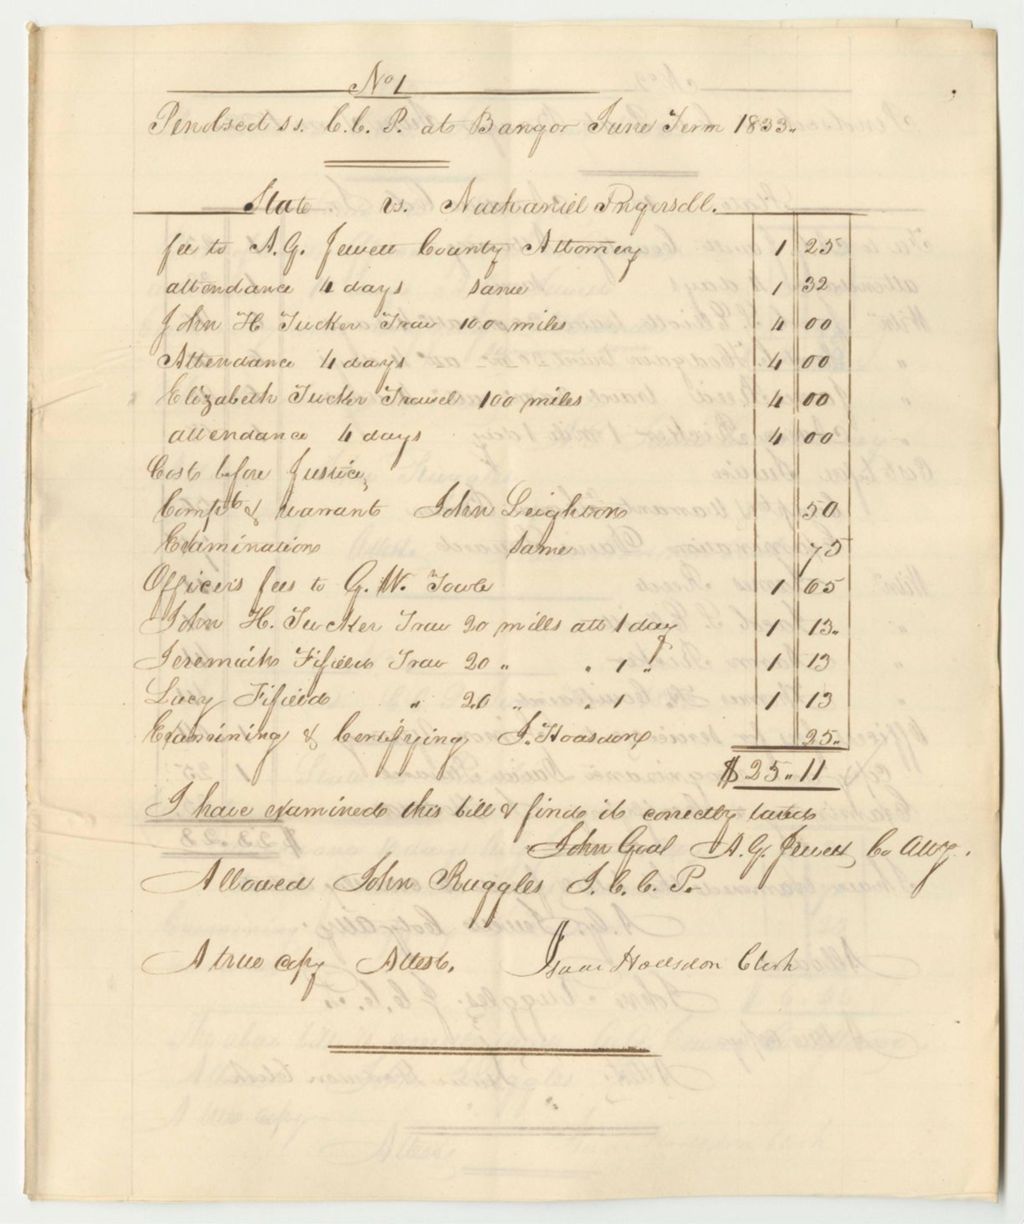 No 1
Penobscot ss. C.C. P. at Bangor June Term 1833.
State vs. Nathaniel Ingersoll.
fee to A.G. Jewett County Attorney 1 25
attendance 4 days same 1 32
John H Tucker Trav 100 miles 4 00
Attendance 4 days 4 00
Elizabeth Tucker Travel 100 miles 4 00
attendance 4 days 4 00
Cost before Justice,
Compt & warrant John Leighton 50
Examination same 75
Officers fees to G. W. Towle 1 65
John H. Tucker Trav 20 mills att 1 day 1 13.
Jeremiah Fifield Trav 20 " " 1 " 1 13
Lucy Fifield " 20 " " 1 1 13
Examining & Certifying I. Hodsdon 25.
$25.11
I have examined this bill & find it correctly taxed
John Godl A.G. Jewett, Co Atty.
Allowed John Ruggles J. C. C. P.
A true copy Attest. Isaac Hodsdon Clerk